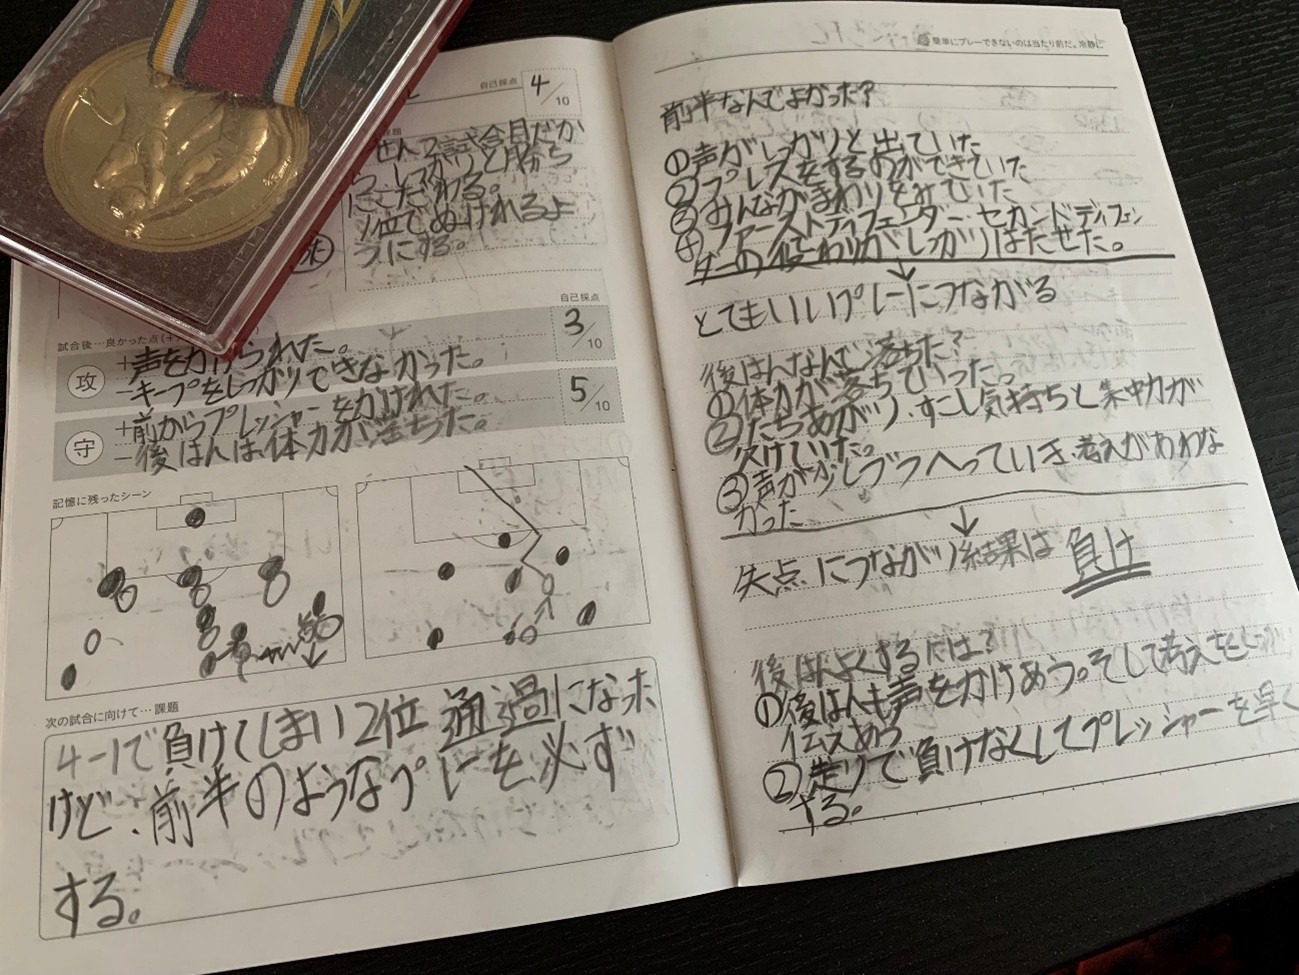 自己採点
4/10
課題
せん2試合目だか
しっかりと勝ち
にこだわる。
1位でぬけれるよ
うにする。
自己採点
試合後…良かった点(+
攻
+声をかけられた。
-キープをしっかりできなかった。
3/10
守
+前からプレッシャーをかけれた。
-後はんは体力が落ちた。
5/10
記憶に残ったシーン
次の試合に向けて…課題
4-1で負けてしまい2位通過になった
けど、前半のようなプレーを必ず
する。
簡単にプレーできないのは当たり前だ。冷静に
前半なんでよかった?
①声がしっかりと出ていた
②プレスをするのができていた
③みんながまわりをみていた
④ファーストディフェンダー・セカンドディフェン
ダーの役わりがしっかりはたせた。
↓
とてもいいプレーにつながる
後はんなんで落ちた?
①体力が落ちていった。
②たちあがり、すこし気持ちと集中力が
欠けていた。
③声が少しずつへっていき、考えがあわな
かった
↓
失点につながり結果は負け
後はんよくするには?
①後はんも声をかけあう。そして考えをしっかり
伝えあう
②走りで負けなくしてプレッシャーを早く
する。